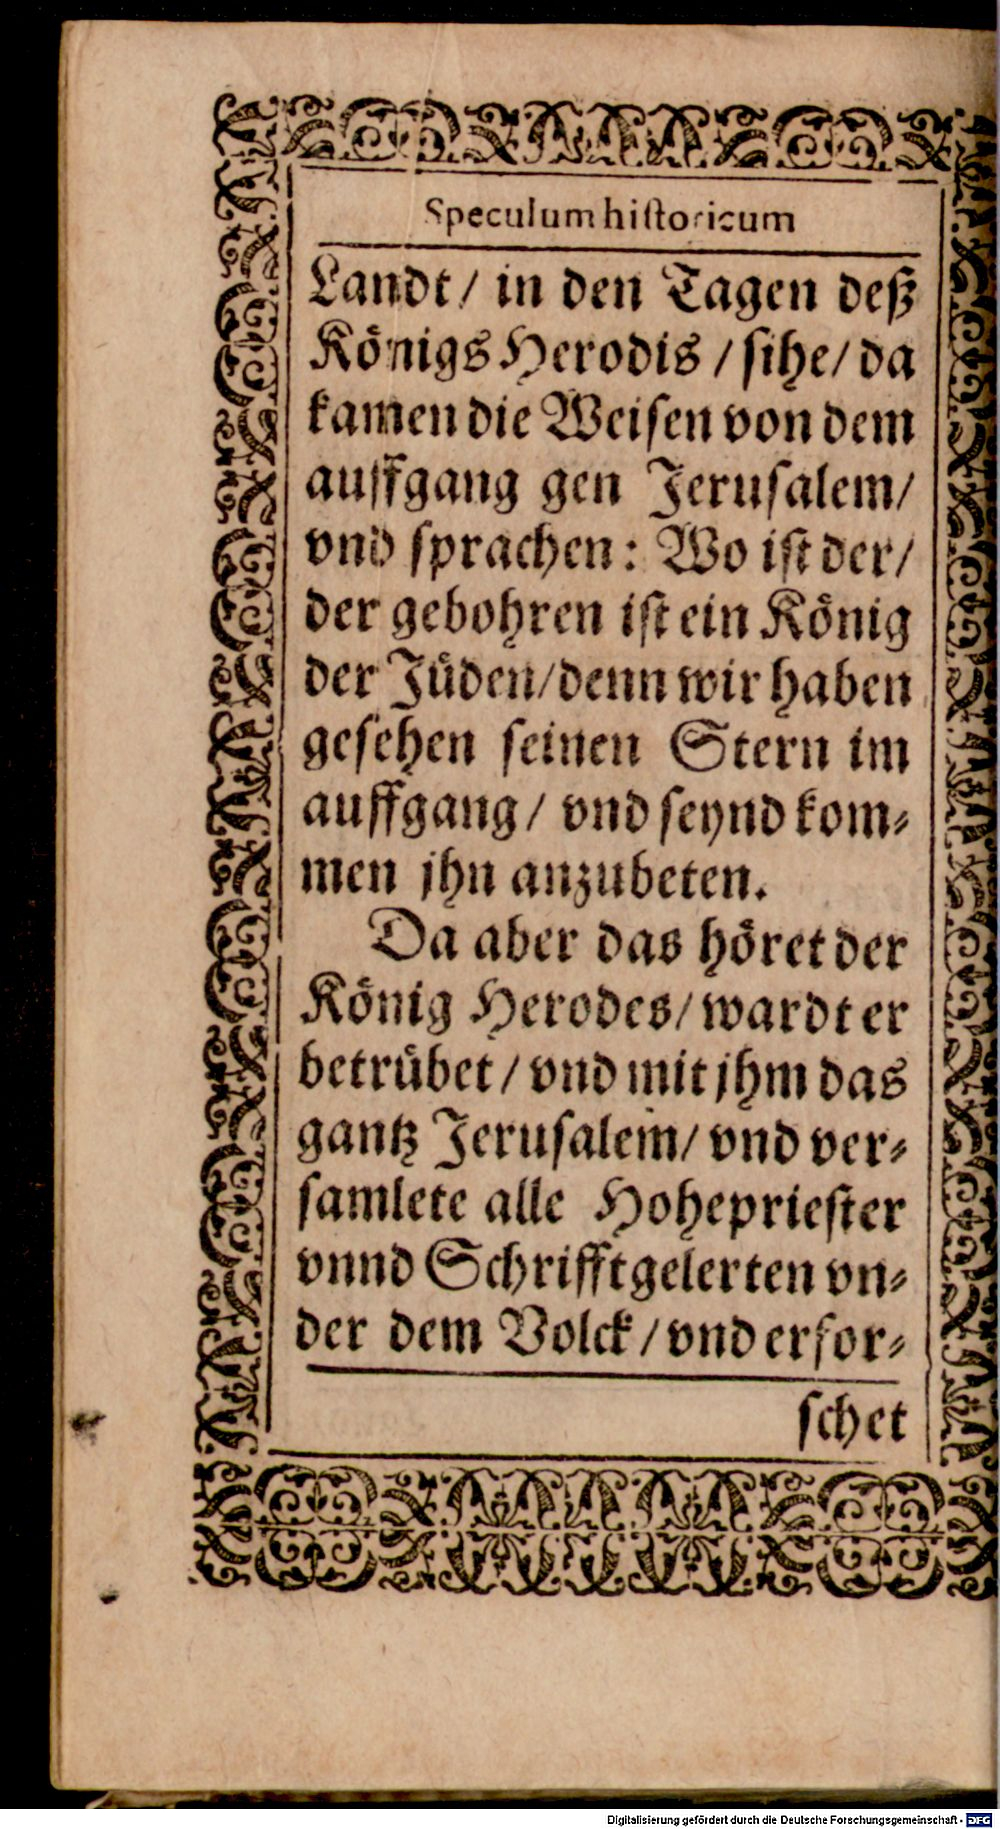 Speculum historicum
Landt/ in den Tagen deß
Königs Herodis / sihe/ da
kamen die Weisen von dem
auffgang gen Jerusalem/
vnd sprachen: Wo ist der/
der gebohren ist ein König
der Jüden/denn wir haben
gesehen seinen Stern im
auffgang/ vnd seynd kom⸗
men jhn anzubeten.
Da aber das höret der
König Herodes/ wardt er
betrübet/ vnd mit jhm das
gantz Jerusalem/ vnd ver⸗
samlete alle Hohepriester
vnnd Schrifftgelerten vn⸗
der dem Volck/ vnd erfor⸗
schet
Digitalisierung gefördert durch die Deutsche Forschungsgemeinschaft - DFG